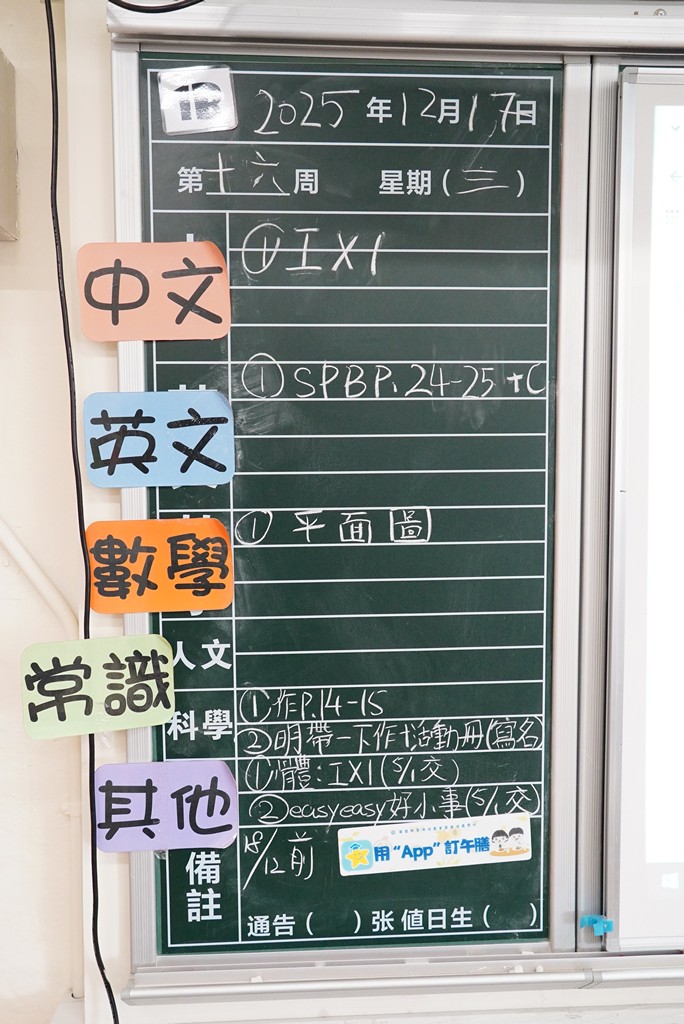 1B 2025年12月17日
第十六周 星期(三)
中文
①工X1
英文
①SPBP.24-25+C
數學
①平面圖
人文
常識
科學
①作P.14-15
②明帶一下作+活動冊(寫名)
其他
①體:工X1(5/1交)
②easyeasy好小事(5/1交)
備註
18/12前
用“App”訂午膳
通告( )张 值日生( )